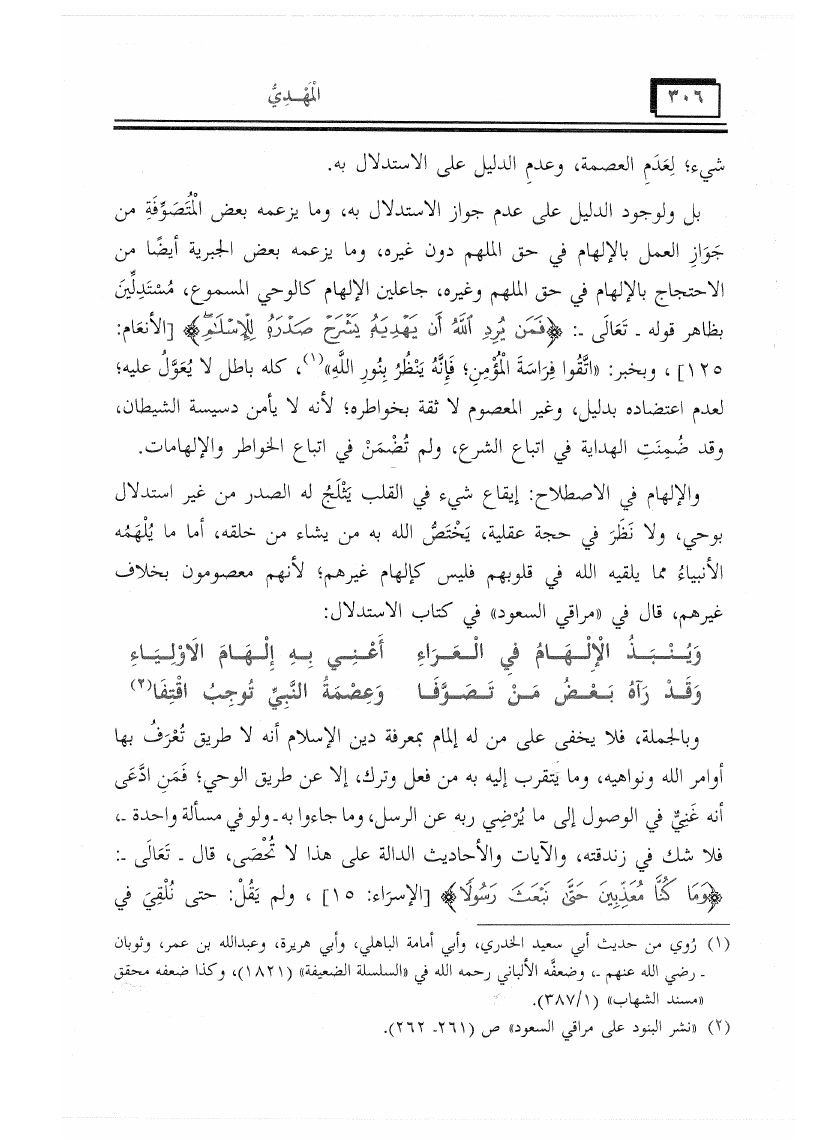 ٣٠٦
الْمَهْـدِيُّ
شيء؛ لِعَدَمِ العصمة، وعدمِ الدليل على الاستدلال به.
بل ولوجود الدليل على عدم جواز الاستدلال به، وما يزعمه بعض الْمُتَصَوِّفَةِ من
جَوَازِ العمل بالإلهام في حق الملهم دون غيره، وما يزعمه بعض الجبرية أيضًا من
الاحتجاج بالإلهام في حق الملهم وغيره، جاعلين الإلهام كالوحي المسموع، مُسْتَدِلِّينَ
بظاهر قوله ـ تَعَالَى ـ: ﴿فَمَن يُرِدِ ٱللَّهُ أَن يَهْدِيَهُۥ يَشْرَحْ صَدْرَهُۥ لِلْإِسْلَٰمِۖ﴾ [الأنعام:
١٢٥] ، وبخبر: «اتَّقُوا فِرَاسَةَ الْمُؤْمِنِ؛ فَإِنَّهُ يَنْظُرُ بِنُورِ اللَّهِ»(١)، كله باطل لا يُعَوَّلُ عليه؛
لعدم اعتضاده بدليل، وغير المعصوم لا ثقة بخواطره؛ لأنه لا يأمن دسيسة الشيطان،
وقد ضُمِنَتِ الهداية في اتباع الشرع، ولم تُضْمَنْ في اتباع الخواطر والإلهامات.
والإلهام في الاصطلاح: إيقاع شيء في القلب يَثْلَجُ له الصدر من غير استدلال
بوحي، ولا نَظَرَ في حجة عقلية، يَخْتَصُّ الله به من يشاء من خلقه، أما ما يُلْهَمُه
الأنبياءُ مما يلقيه الله في قلوبهم فليس كإلهام غيرهم؛ لأنهم معصومون بخلاف
غيرهم، قال في «مراقي السعود» في كتاب الاستدلال:
وَيُـنْـبَـذُ الْإِلْـهَـامُ فِي الْـعَـرَاءِ أَعْـنِـي بِـهِ إِلْـهَـامَ الَاوْلِـيَـاءِ
وَقَـدْ رَآهُ بَـعْـضُ مَـنْ تَـصَـوَّفَـا وَعِصْمَةُ النَّبِيِّ تُوجِبُ اقْتِفَا(٢)
وبالجملة، فلا يخفى على من له إلمام بمعرفة دين الإسلام أنه لا طريق تُعْرَفُ بها
أوامر الله ونواهيه، وما يَتقرب إليه به من فعل وترك، إلا عن طريق الوحي؛ فَمَنِ ادَّعَى
أنه غَنِيٌّ في الوصول إلى ما يُرْضِي ربه عن الرسل، وما جاءوا به ـ ولو في مسألة واحدة ـ،
فلا شك في زندقته، والآيات والأحاديث الدالة على هذا لا تُحْصَى، قال ـ تَعَالَى ـ:
﴿وَمَا كُنَّا مُعَذِّبِينَ حَتَّىٰ نَبْعَثَ رَسُولًا﴾ [الإسراء: ١٥] ، ولم يَقُلْ: حتى نُلْقِيَ في
(١) رُوي من حديث أبي سعيد الخدري، وأبي أمامة الباهلي، وأبي هريرة، وعبدالله بن عمر، وثوبان
ـ رضي الله عنهم ـ، وضعفَّه الألباني رحمه الله في «السلسلة الضعيفة» (١٨٢١)، وكذا ضعفه محقق
«مسند الشهاب» (٣٨٧/١).
(٢) «نشر البنود على مراقي السعود» ص (٢٦١ـ ٢٦٢).